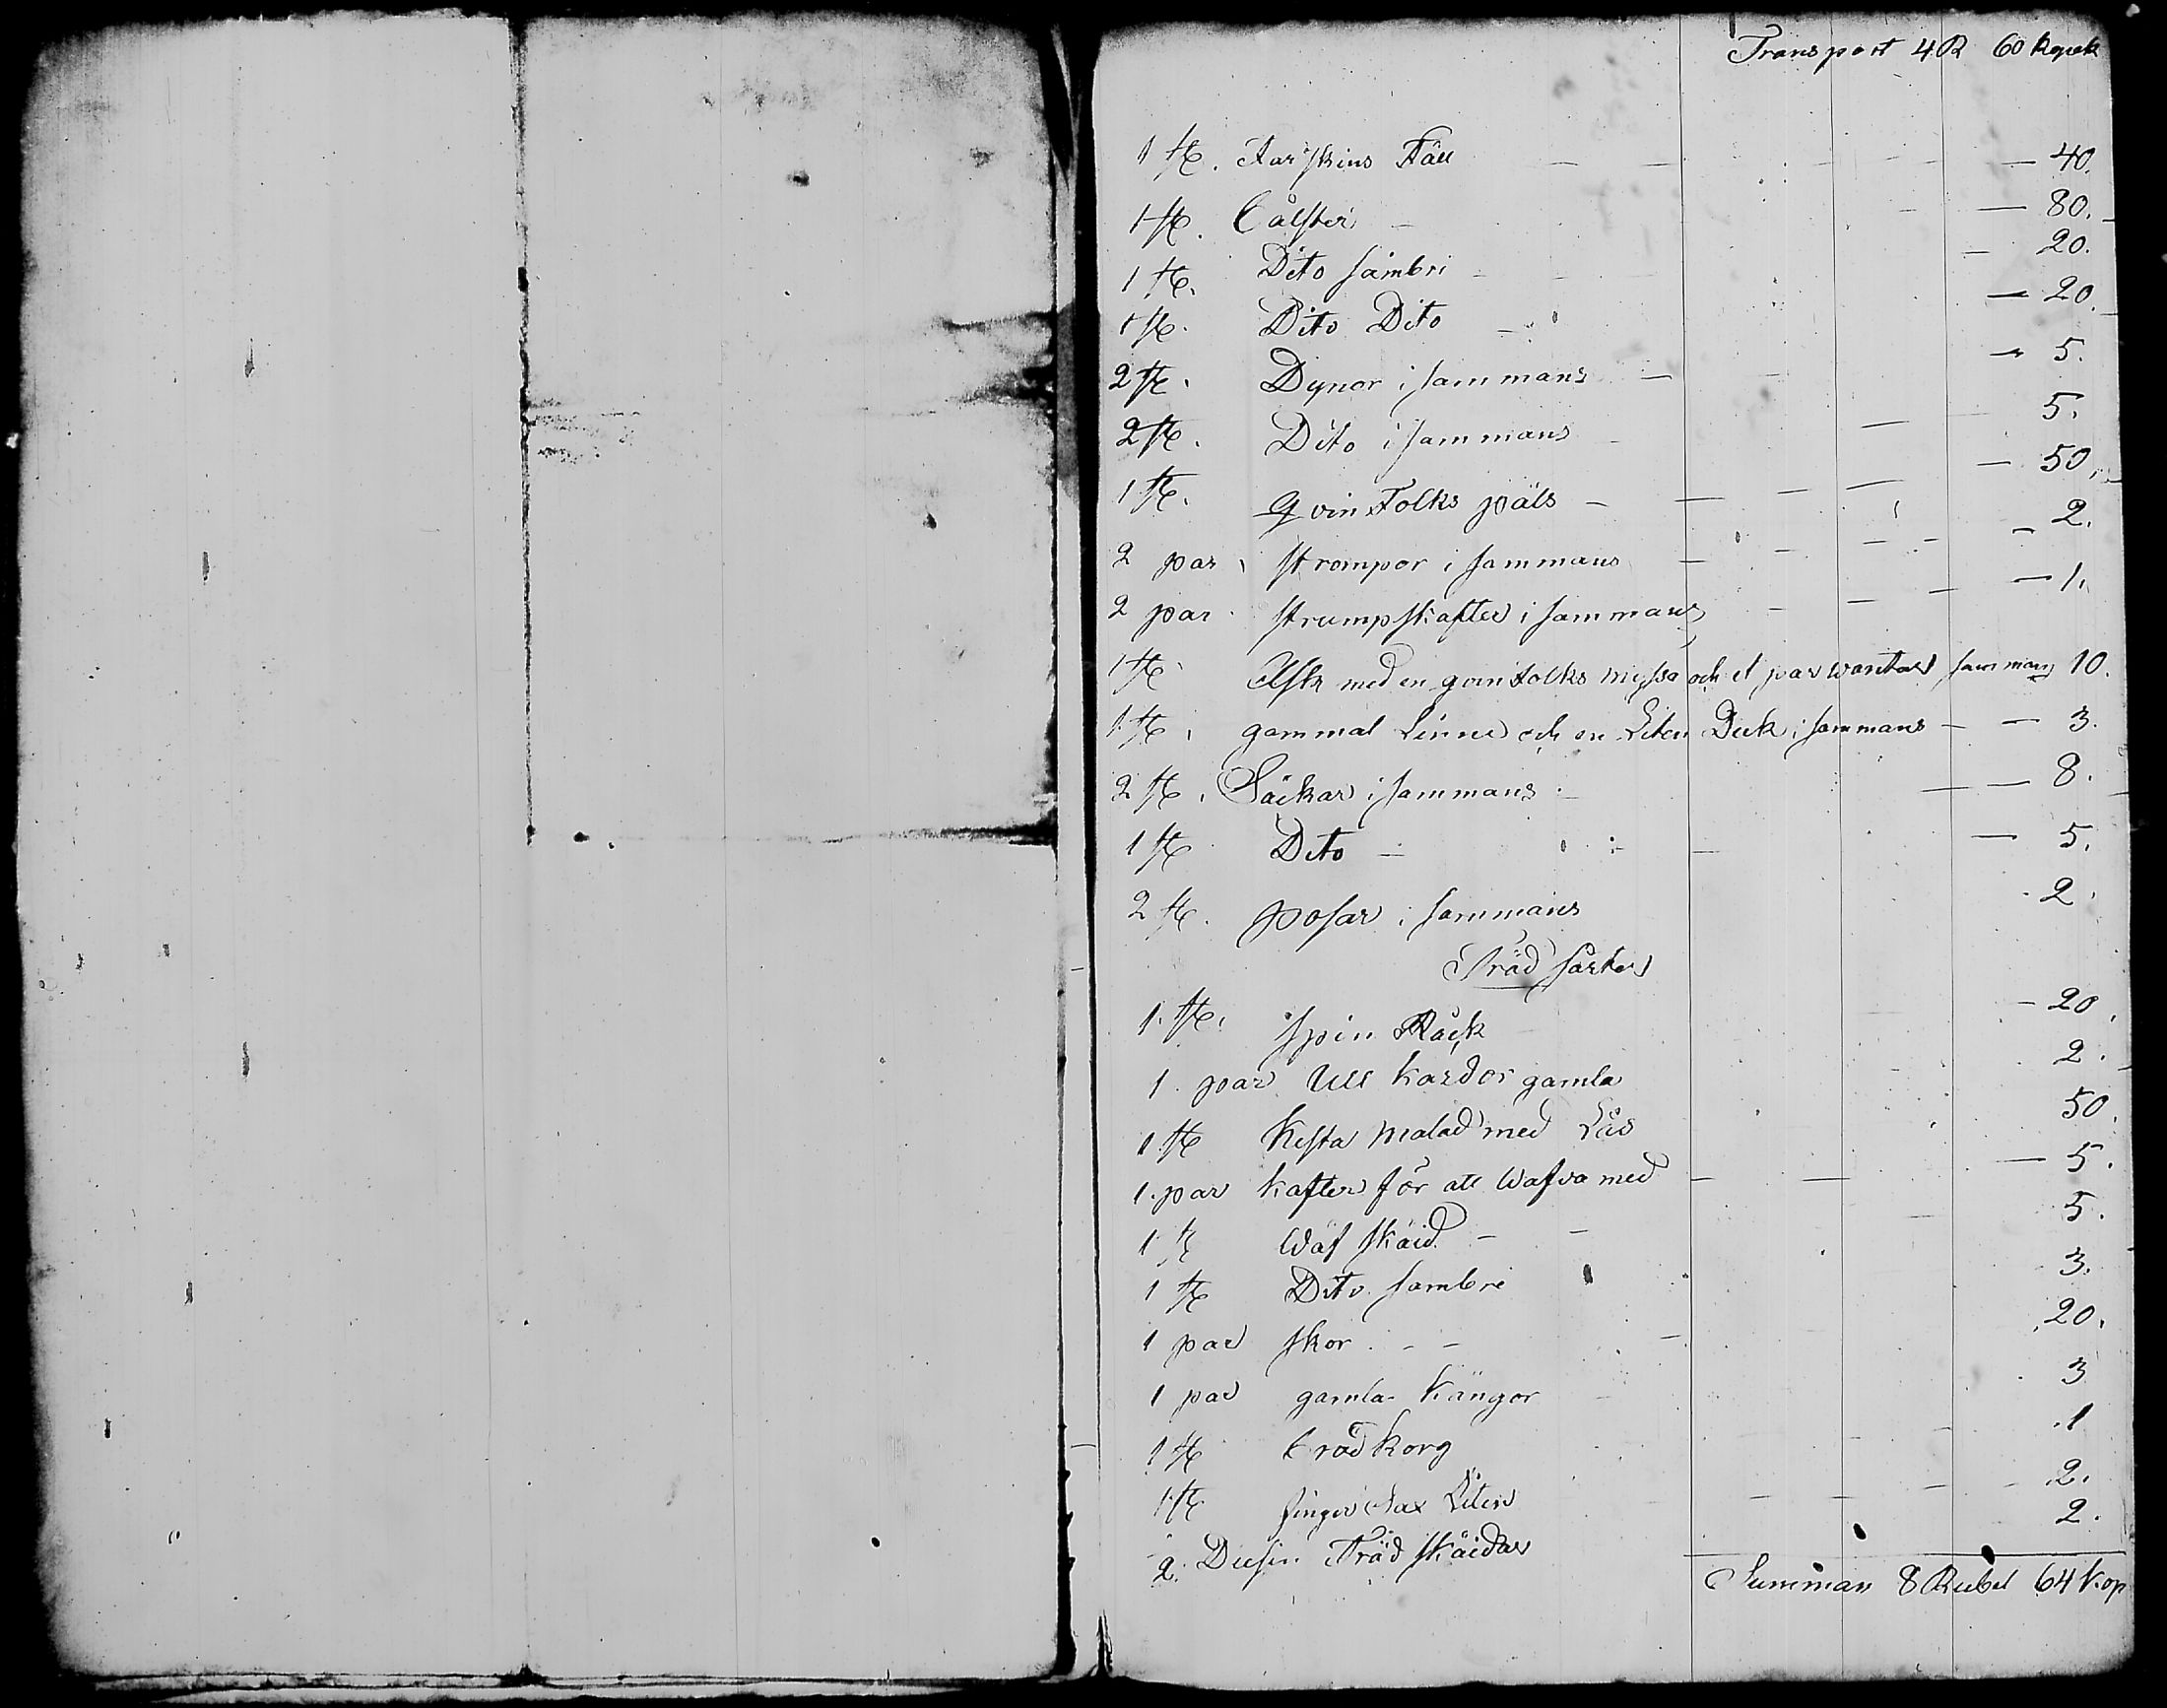 Transport 4 R 60 kopek
1 st. Farskins Fäll — — — 40.
1 st. Bålster — — — 80.
1 st. Dito sämbri — — 20.
1 st. Dito Dito — — 20.
2 st. Dynor i sammans — — 5.
2 st. Dito i sammans — — 5.
1 st. qvin Folks päls — — — — 50.
2 par strompor i sammans — — — 2.
2 par strumpskafter i sammans — — — — 1.
1 st. Ask med en qvinfolks myssa och et par wantar sammans 10.
1 st. gammal Linne och en Liten Duk i sammans — — 3.
2 st. Säckar i sammans — — 8.
1 st. Dito — — — 5.
2 st. posar i sammans 2.
Träd saker
1. st. spin Råck — 20
1. par Ull kardor gamla 2.
1 st Kista Målad med Lås 50.
1. par kafter för att Wäfva med — — — 5.
1 st Wäf skäid — — 5.
1 st Dito sambre 3.
1 par skor — — — 20.
1 par gamla kängor 3
1 st bröd korg 1
1 st finger Sax Liten — — 2.
2. Dusin Träd skäidar 2.
Summan 8 Rubel 64 kop